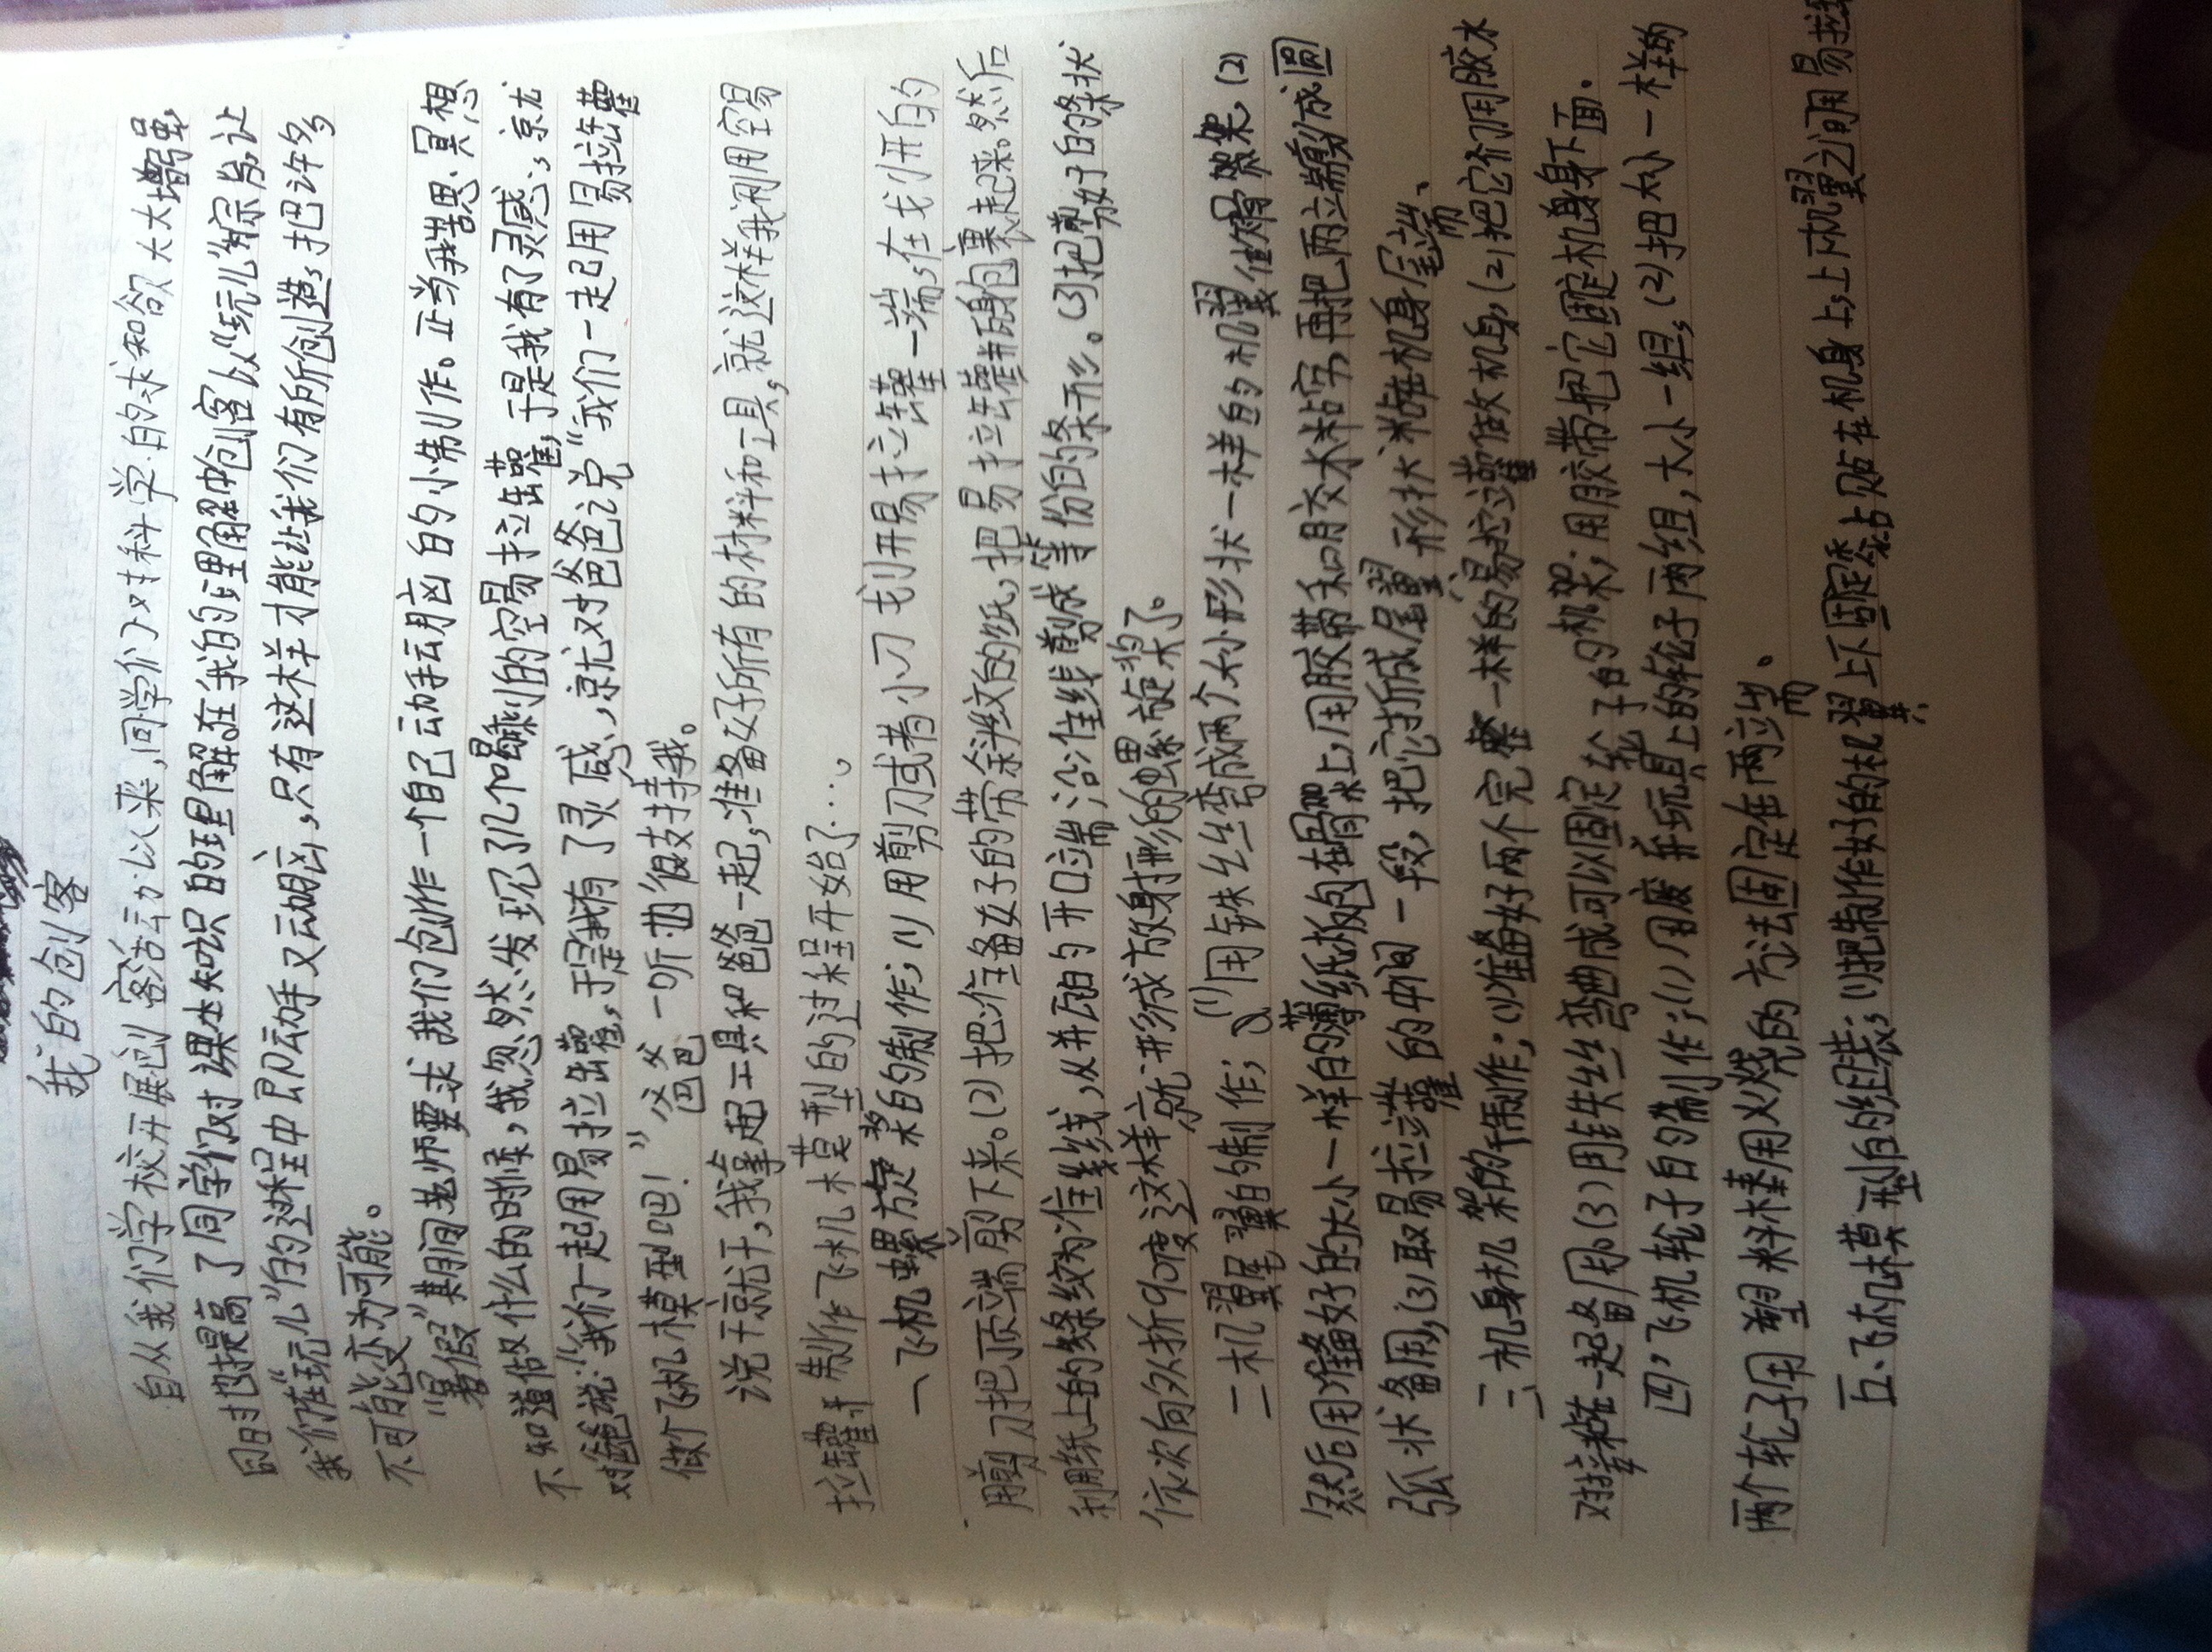 我的创客
自从我们学校开展创客活动以来,同学们对科学的求知欲大大增强,
同时也提高了同学们对课本知识的理解。在我的理解中创客以“玩儿”为宗旨,让
我们在“玩儿”的过程中即动手又动脑,只有这样才能让我们有所创造,把许多
不可能变为可能。
“暑假”期间老师要求我们创作一个自己动手动脑的小制作。正当我苦思冥想
不知道做什么的时候,我忽然发现了几个喝剩的空易拉罐,于是我有了灵感,就
对爸爸说:“我们一起用易拉罐,于是我有了灵感,就对爸爸说“我们一起用易拉罐
做个飞机模型吧!”爸爸一听也很支持我。
说干就干,我拿起工具和爸爸一起,准备好所有的材料和工具,就这样我利用空易
拉罐制作飞机模型的过程开始了……
一飞机螺旋桨的制作;(1)用剪刀或者小刀划开易拉罐一端,在划开的
用剪刀把顶端剪下来。(2)把准备好的带条纹的纸,把易拉罐瓶身包裹起来。然后
利用纸上的线条纹为准线,从并瓶的开口端沿准线剪成等份的条形。(3)把剪好的条状
依次向外折90度这样就形成放射形的螺旋桨了。
二机翼尾翼的制作;(1)用铁丝弯成两个大小形状一样的机翼做骨架,(2)
然后用准备好的大小一样的薄纸板包在骨架上,用胶带和胶水粘牢,再把两端剪成圆
弧状备用,(3)取易拉罐的中间一段,把它折成尾翼形状粘在机身尾端、
三、机身机架的制作;(1)准备好两个完整一样的易拉罐做机身,(2)把它们用胶水
对接粘在一起备用。(3)用铁丝弯曲成可以固定轮子的机架,用胶带把它固定机身下面.
四,飞机轮子的制作;(1)用废弃玩具上的轮子两组,大小一组,(2)把大小一样的
两个轮子用塑料棒用火烧的方法固定在两端。
五、飞机模型的组装;(1)把制作好的机翼上下固定粘贴在机身上,上下机翼之间用易拉